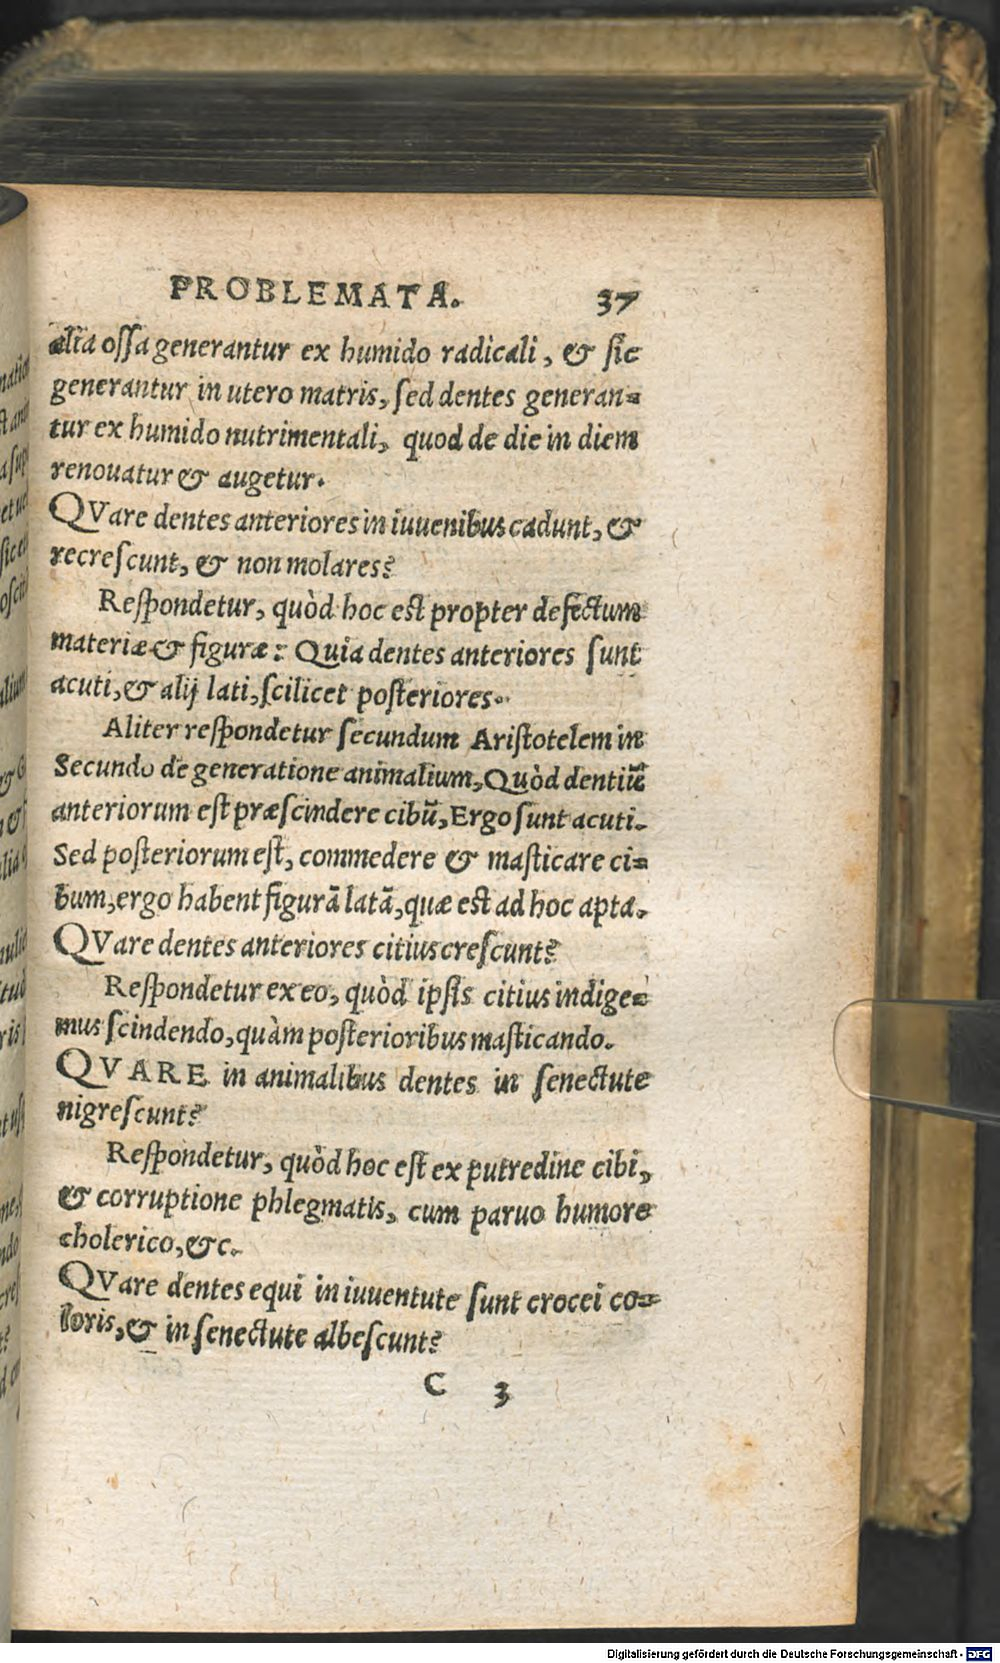 PROBLEMATA. 37
alia ossa generantur ex humido radicali, & sic
generantur in utero matris, sed dentes generan=
tur ex humido nutrimentali, quod de die in diem
renouatur & augetur.
QVare dentes anteriores in iuuenibus cadunt, &
recrescunt, & non molares?
Respondetur, quòd hoc est propter defectum
materiæ & figuræ: Quia dentes anteriores sunt
acuti, & alij lati, scilicet posteriores.
Aliter respondetur secundum Aristotelem in
Secundo de generatione animalium, Quòd dentiũ
anteriorum est præscindere cibũ, Ergo sunt acuti.
Sed posteriorum est, commedere & masticare ci=
bum, ergo habent figurã latã, quæ est ad hoc apta.
QVare dentes anteriores citius crescunt?
Respondetur ex eo, quòd ipsis citius indige=
mus scindendo, quàm posterioribus masticando.
QVARE in animalibus dentes in senectute
nigrescunt?
Respondetur, quòd hoc est ex putredine cibi,
& corruptione phlegmatis, cum paruo humore
cholerico, &c.
QVare dentes equi in iuuentute sunt crocei co=
loris, & in senectute albescunt?
C 3
Digitalisierung gefördert durch die Deutsche Forschungsgemeinschaft - DFG